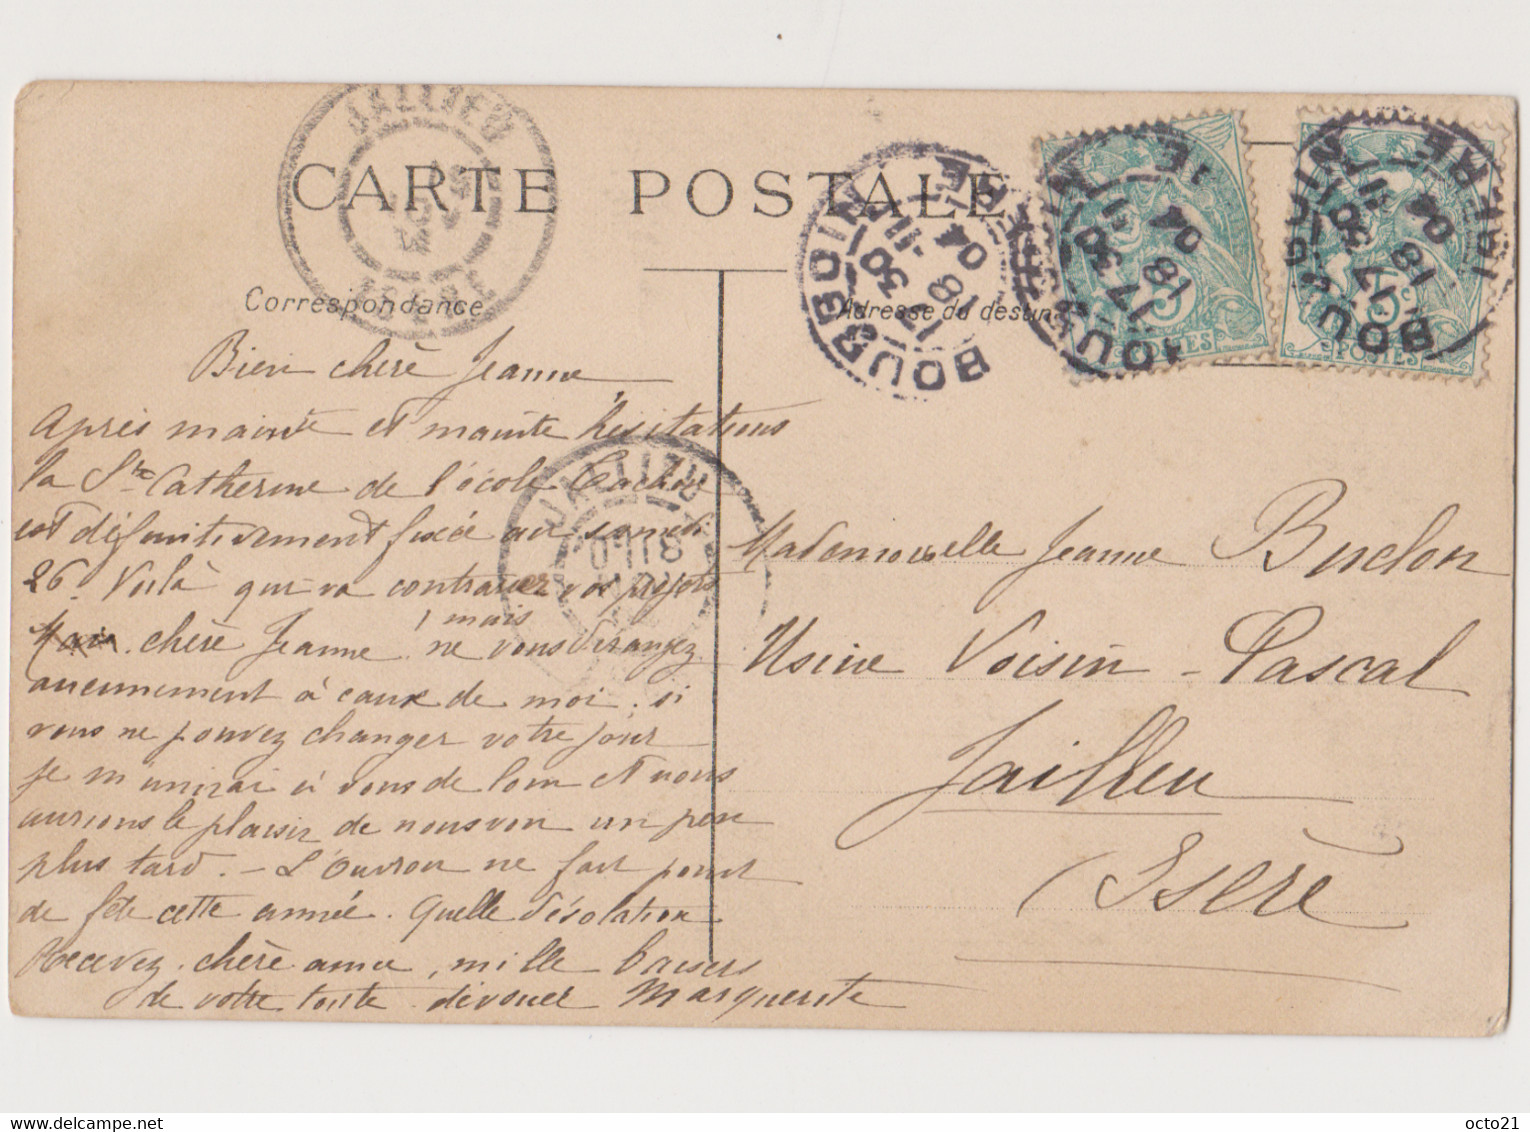 CARTE POSTALE
JALLIEU
ISÈRE
BOURGOIN
17 30
18 -11
04
BOURGOIN
17 30
18 11
04
ISÈRE
BOURGOIN
17 30
18 11
04
ISÈRE
5c
POSTES
Correspondance
Adresse du destin
Bien chère Jeanne
Après mainte et mainte hésitations
la Ste Catherine de l'école
est définitivement fixée au samedi
26. Voilà qui va contrarier vos projets
mais
chère Jeanne ne vous dérangez
aucunement à cause de moi. si
vous ne pouvez changer votre jour
je m'unirai à vous de loin et nous
aurions le plaisir de nous voir un peu
plus tard. - L'Ouvroir ne fait point
de fête cette année. Quelle désolation
Recevez chère amie, mille baisers
de votre toute dévouée Marguerite
JALLIEU
Mademoiselle Jeanne Buclon
Usine Voisin-Pascal
Jailleu
Isère
delcampe.net
octo21